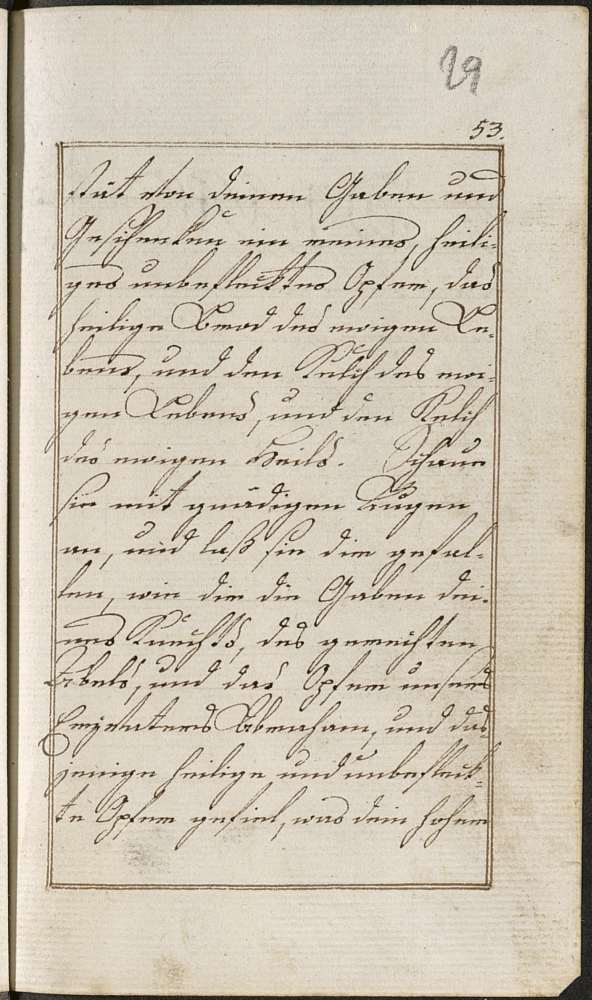 29
53.
stät von deinen Gaben und
Geschenken ein reines, heili-
ges unbeflecktes Opfer, das
heilige Brod des ewigen Le-
bens, und den Kelch des ewi-
gen Lebens, und den Kelch
des ewigen Heils. Schaue
sie mit gnädigen Augen
an, und laß sie dir gefal-
len, wie dir die Gaben dei-
nes Knechts, des gerechten
Abels, und das Opfer unsers
Erzvaters Abraham, und das
jenige heilige und unbefleck-
te Opfer gefiel, was dein hoher